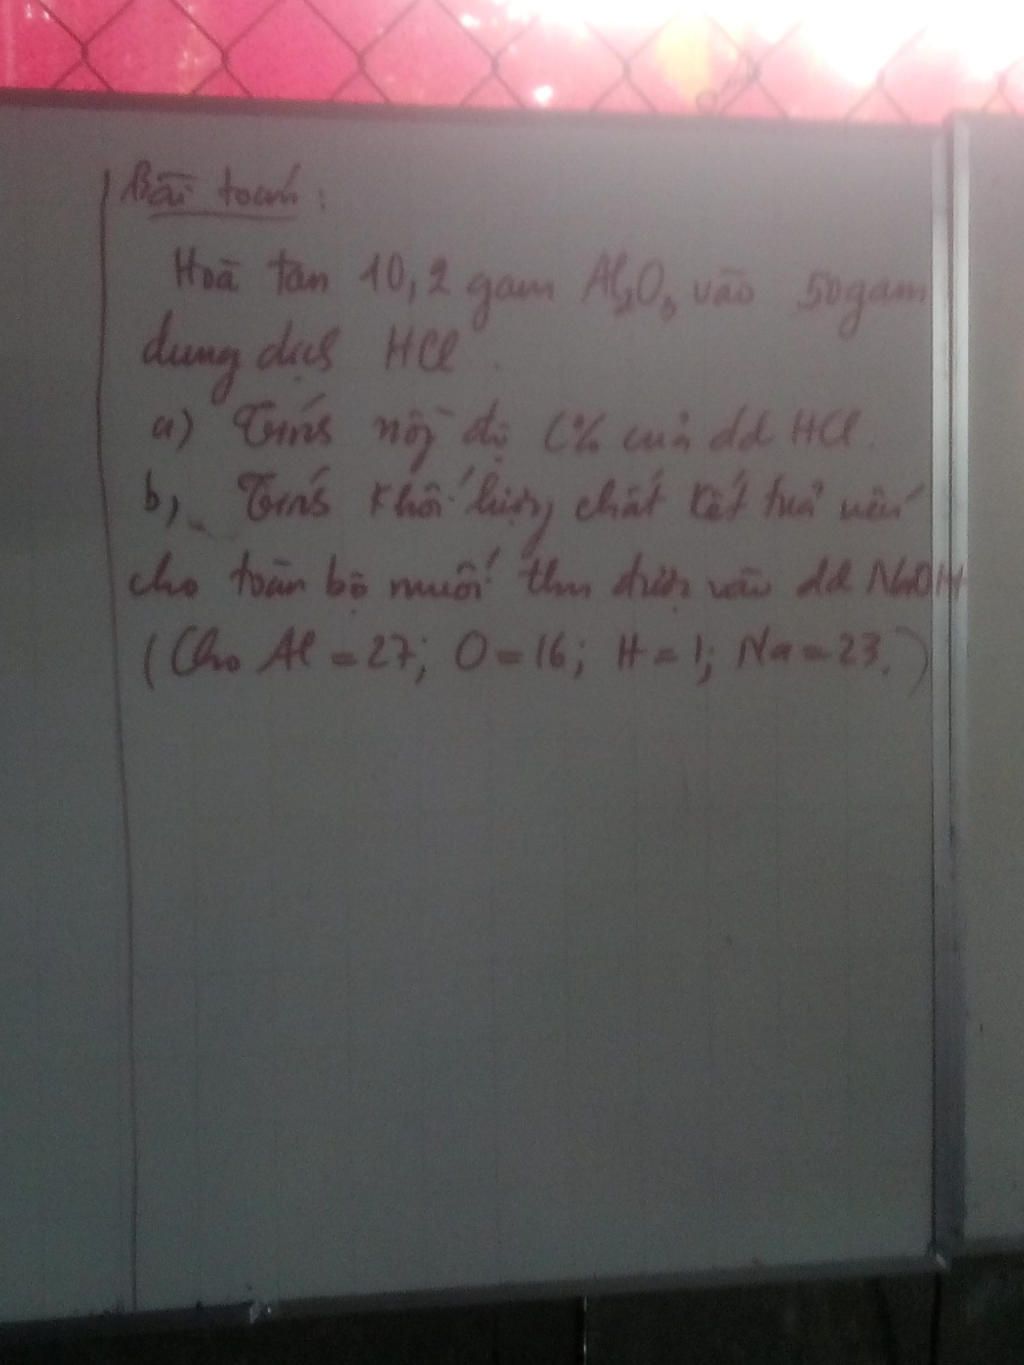 Bài toán:
Hoà tan 10,2 gam Al₂O₃ vào 50gam
dung dịch HCl.
a) Tính nồng độ C% của dd HCl.
b, Tính khối lượng chất kết tủa nếu
cho toàn bộ muối thu được vào dd NaOH
(Cho Al = 27; O = 16; H = 1; Na = 23.)